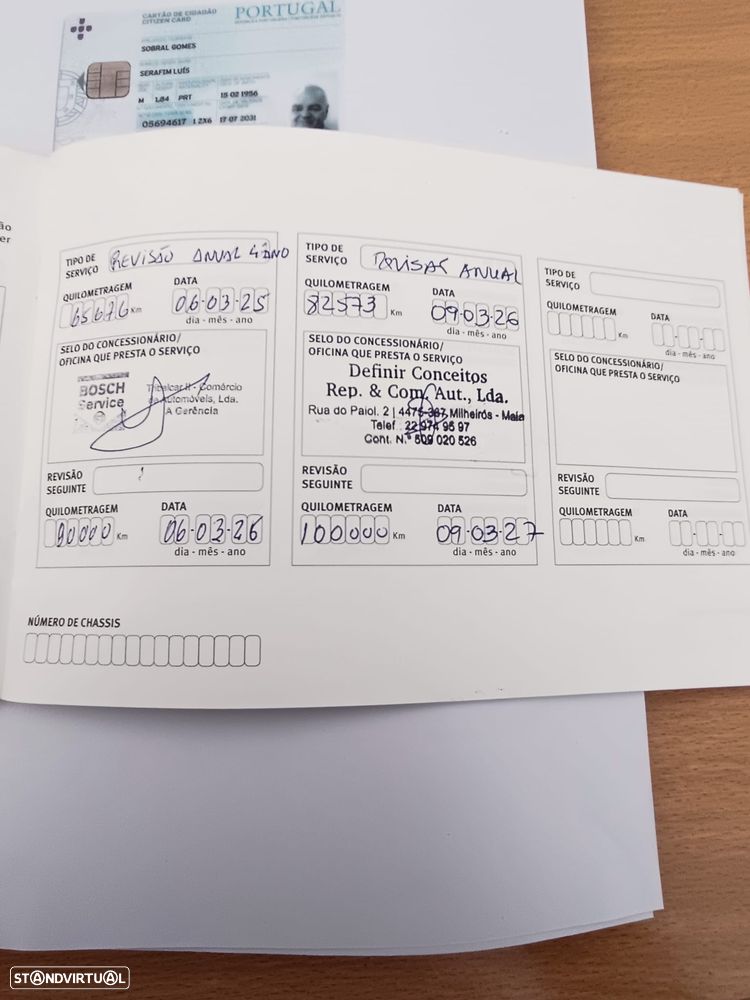 CARTÃO DE CIDADÃO
CITIZEN CARD
PORTUGAL
SOBRAL GOMES
SERAFIM LUÍS
M 1,84 PRT 15 02 1956
05694617 1 ZX6 17 07 2031
ão
er
TIPO DE
SERVIÇO
REVISÃO ANUAL 4º ANO
QUILOMETRAGEM
DATA
65676 Km
06-03-25
dia - mês - ano
SELO DO CONCESSIONÁRIO/
OFICINA QUE PRESTA O SERVIÇO
BOSCH
Service
Comércio
de Automóveis, Lda.
A Gerência
REVISÃO
SEGUINTE
QUILOMETRAGEM
DATA
90000 Km
06-03-26
dia - mês - ano
TIPO DE
SERVIÇO
REVISÃO ANUAL
QUILOMETRAGEM
DATA
82573 Km
09-03-26
dia - mês - ano
SELO DO CONCESSIONÁRIO/
OFICINA QUE PRESTA O SERVIÇO
Definir Conceitos
Rep. & Com. Aut., Lda.
Rua do Paiol, 2 | 4475-367 Milheirós - Maia
Telef.: 22 974 95 97
Cont. N.º 509 020 526
REVISÃO
SEGUINTE
QUILOMETRAGEM
DATA
100000 Km
09-03-27
dia - mês - ano
TIPO DE
SERVIÇO
QUILOMETRAGEM
DATA
Km
dia - mês - ano
SELO DO CONCESSIONÁRIO/
OFICINA QUE PRESTA O SERVIÇO
REVISÃO
SEGUINTE
QUILOMETRAGEM
DATA
Km
dia - mês - ano
NÚMERO DE CHASSIS
STANDVIRTUAL